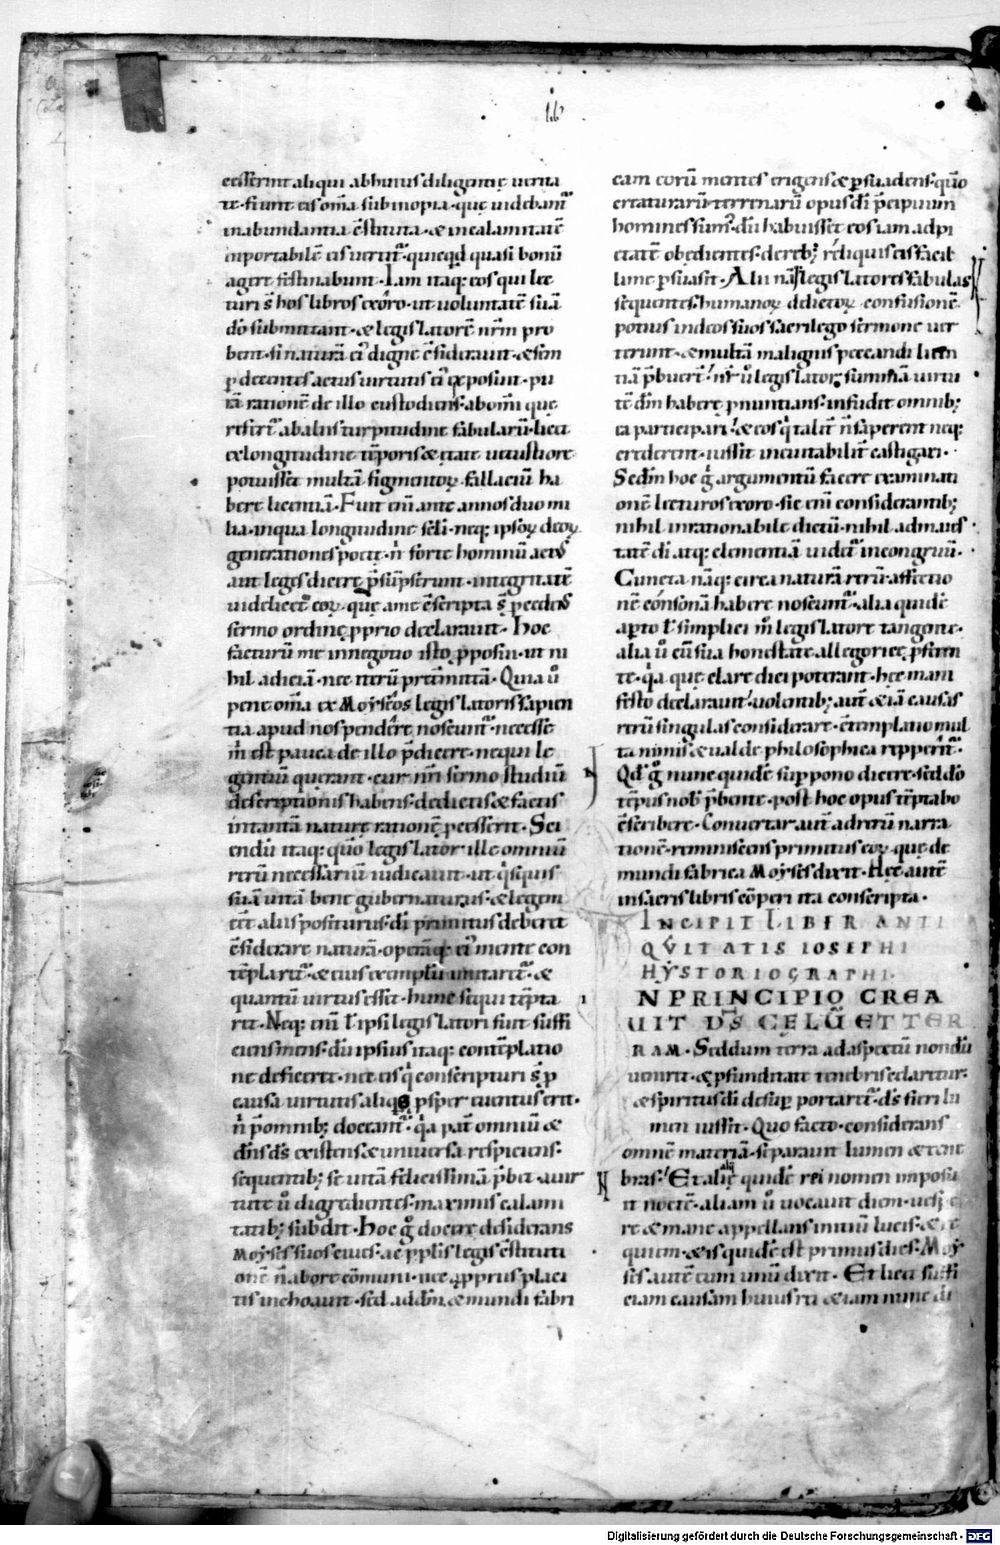 lib
cesserint aliqui abhuius diligentie uerita
te · fiunt eis om̄a sub inopia · que uidebant᷑
in abundantia c̄stituta · & in calamitatē
inportabilē eis uertit᷑ · quicqd quasi bonū
agere festinabunt · Iam itaq; eos qui lec
turi s̄ hos libros exoro · ut uoluntatē suā
dō submittant · & legislatorē nrm pro
bent · si naturā ei᷒ digne c̄siderauit · & sem
p decentes actus uirtutis ei᷒ exposuit · pu
rā rationē de illo custodiens · ab om̄i que
refert᷑ ab aliis turpitudine fabularū · licet
ex longitudine tēporis & etate uetustiore
potuisset multā figmentoꝝ fallaciū ha
bere licentiā · Fuit eni ante annos duo mi
lia · in qua longitudine sc̄li · neq; ipsoꝝ deoꝝ
generationes poete · n̄ forte hominū actꝰ
aut leges dicere p̄sūpserunt · integritatē
uidelicet eoꝝ · que ante c̄scripta s̄ pcedēs
sermo ordine pprio declarauit · Hoc
facturū me in negotio isto pposui · ut ni
hil adiciā · nec iterū pretmittā · Quia u̅
pene om̄a ex Moyseos legislatoris sapien
tia apud nos pendere noscunt᷑ · necesse
m̄ est pauca de illo p̄dicere · ne qui le
gentiū querant · cur nr̄i sermo studiū
descriptionis habens · de dictis & factis
in tantā nature rationē pcesserit · Sci
endū itaq; quō legislator ille omniū
rerū necessariū iudicauit · ut qͥsquis
suā uitā bene gubernaturus · & legem
cet aliis positurus · di primitus deberet
c̄siderare naturā · operāq; ei᷒ mente con
tēplaret᷑ · & eius exemplū imitaret᷑ · &
quantū uirtus esset · hunc sequi tēpta
ret · Neq; eni ł ipsi legislatori fiut suffi
ciens mens · dū ipsius itaq; contēplatio
ne deficeret · nec eis qͥ conscripturi s̄ p
causa uirtutis aliqͦ psper euentus erit ·
n̄ p̄ omnib; doceant᷑ · qͣa pat̄ omniū &
dn̄s ds̄ existens & uniuersa respiciens ·
sequentib; se uitā felicissimā p̄bet · a uir
tute u̅ digredientes · maximis calami
tatib; subdit · Hoc g̊ docere desiderans
Moyses suos ciues · ac pplis legis c̄stituti
onē n̄ ab ore cōmuni · nec pprius placi
tis inchoauit · sed ad dm̄ & mundi fabri
cam eorū mentes erigens & psuadens · quō
creaturarū terrenarū opus di p̄cipuum
homines sum᷒ · dū habuisset eos iam ad pi
etatē obedientes · de reb; reliquis eis facil
lime psuasit · Alii nāq; legislatores fabulas
sequentes · humanoꝝ delictoꝝ confusionē
potius in deos suos sacrilego sermone uer
terunt · & multā malignis peccandi licen
tiā p̄buert᷑ · nr̄ u̅ legislator summā uirtu
tē dm̄ habere pnuntians · infudit omnib;
ea participari · & eos qͥ talit̄ n̄ saperent neq;
crederent · iussit ineuitabilit̄ castigari ·
Sedm̄ hoc g̊ argumentū facere examinati
onē lecturos exoro · sic eni considerantib;
nihil inrationabile dictū · nihil ad maies
tatē di atq; clementiā uidet᷑ incongruū ·
Cuncta nāq; circa naturā rerū affectio
nē consonā habere noscunt᷑ · alia quidē
apto ł simplici m̄ legislatore tangente ·
alia u̅ cū sua honestate allegorice pferen
te · qͣ a que clare dici poterant · hec mani
festo declarauit · uolentib; aut̄ & iā causas
rerū singulas considerare · c̄templatio mul
ta nimis & ualde philosophica reppērit᷑ ·
Qd g̊ nunc quidē suppono dicere · sed dō
tēpus nob p̄bente · post hoc opus tēptabo
c̄scribere · Conuertar aut̄ ad rerū narra
tionē · reminiscens primitus eoꝝ · que de
mundi fabrica Moyses dixit · Hec autē
in sacris libris cōperi ita conscripta ·
INCIPIT LIBER ANTI
QVITATIS IOSEPHI
HYSTORIOGRAPHI ·
N PRINCIPIO CREA
UIT DS̄ CELŪ ET TER
RAM · Sed dum terra ad aspectū nondū
ueniret · & pfunditate tenebris celaretur ·
& spiritus di desup portaret᷑ · ds̄ fieri lu
men iussit · Quo facto · considerans
omnē materiā · separauit lumen & tene
bras · Et alie quidē rei nomen imposu
it noctē · aliam u̅ uocauit diem · uespe
re & mane appellans initiū lucis · & re
quiem · & is quidē est primus dies · Moy
ses autē eum unū dixit · Et licet suffi
ciam causam huius rei & iam nunc di
Digitalisierung gefördert durch die Deutsche Forschungsgemeinschaft - DFG